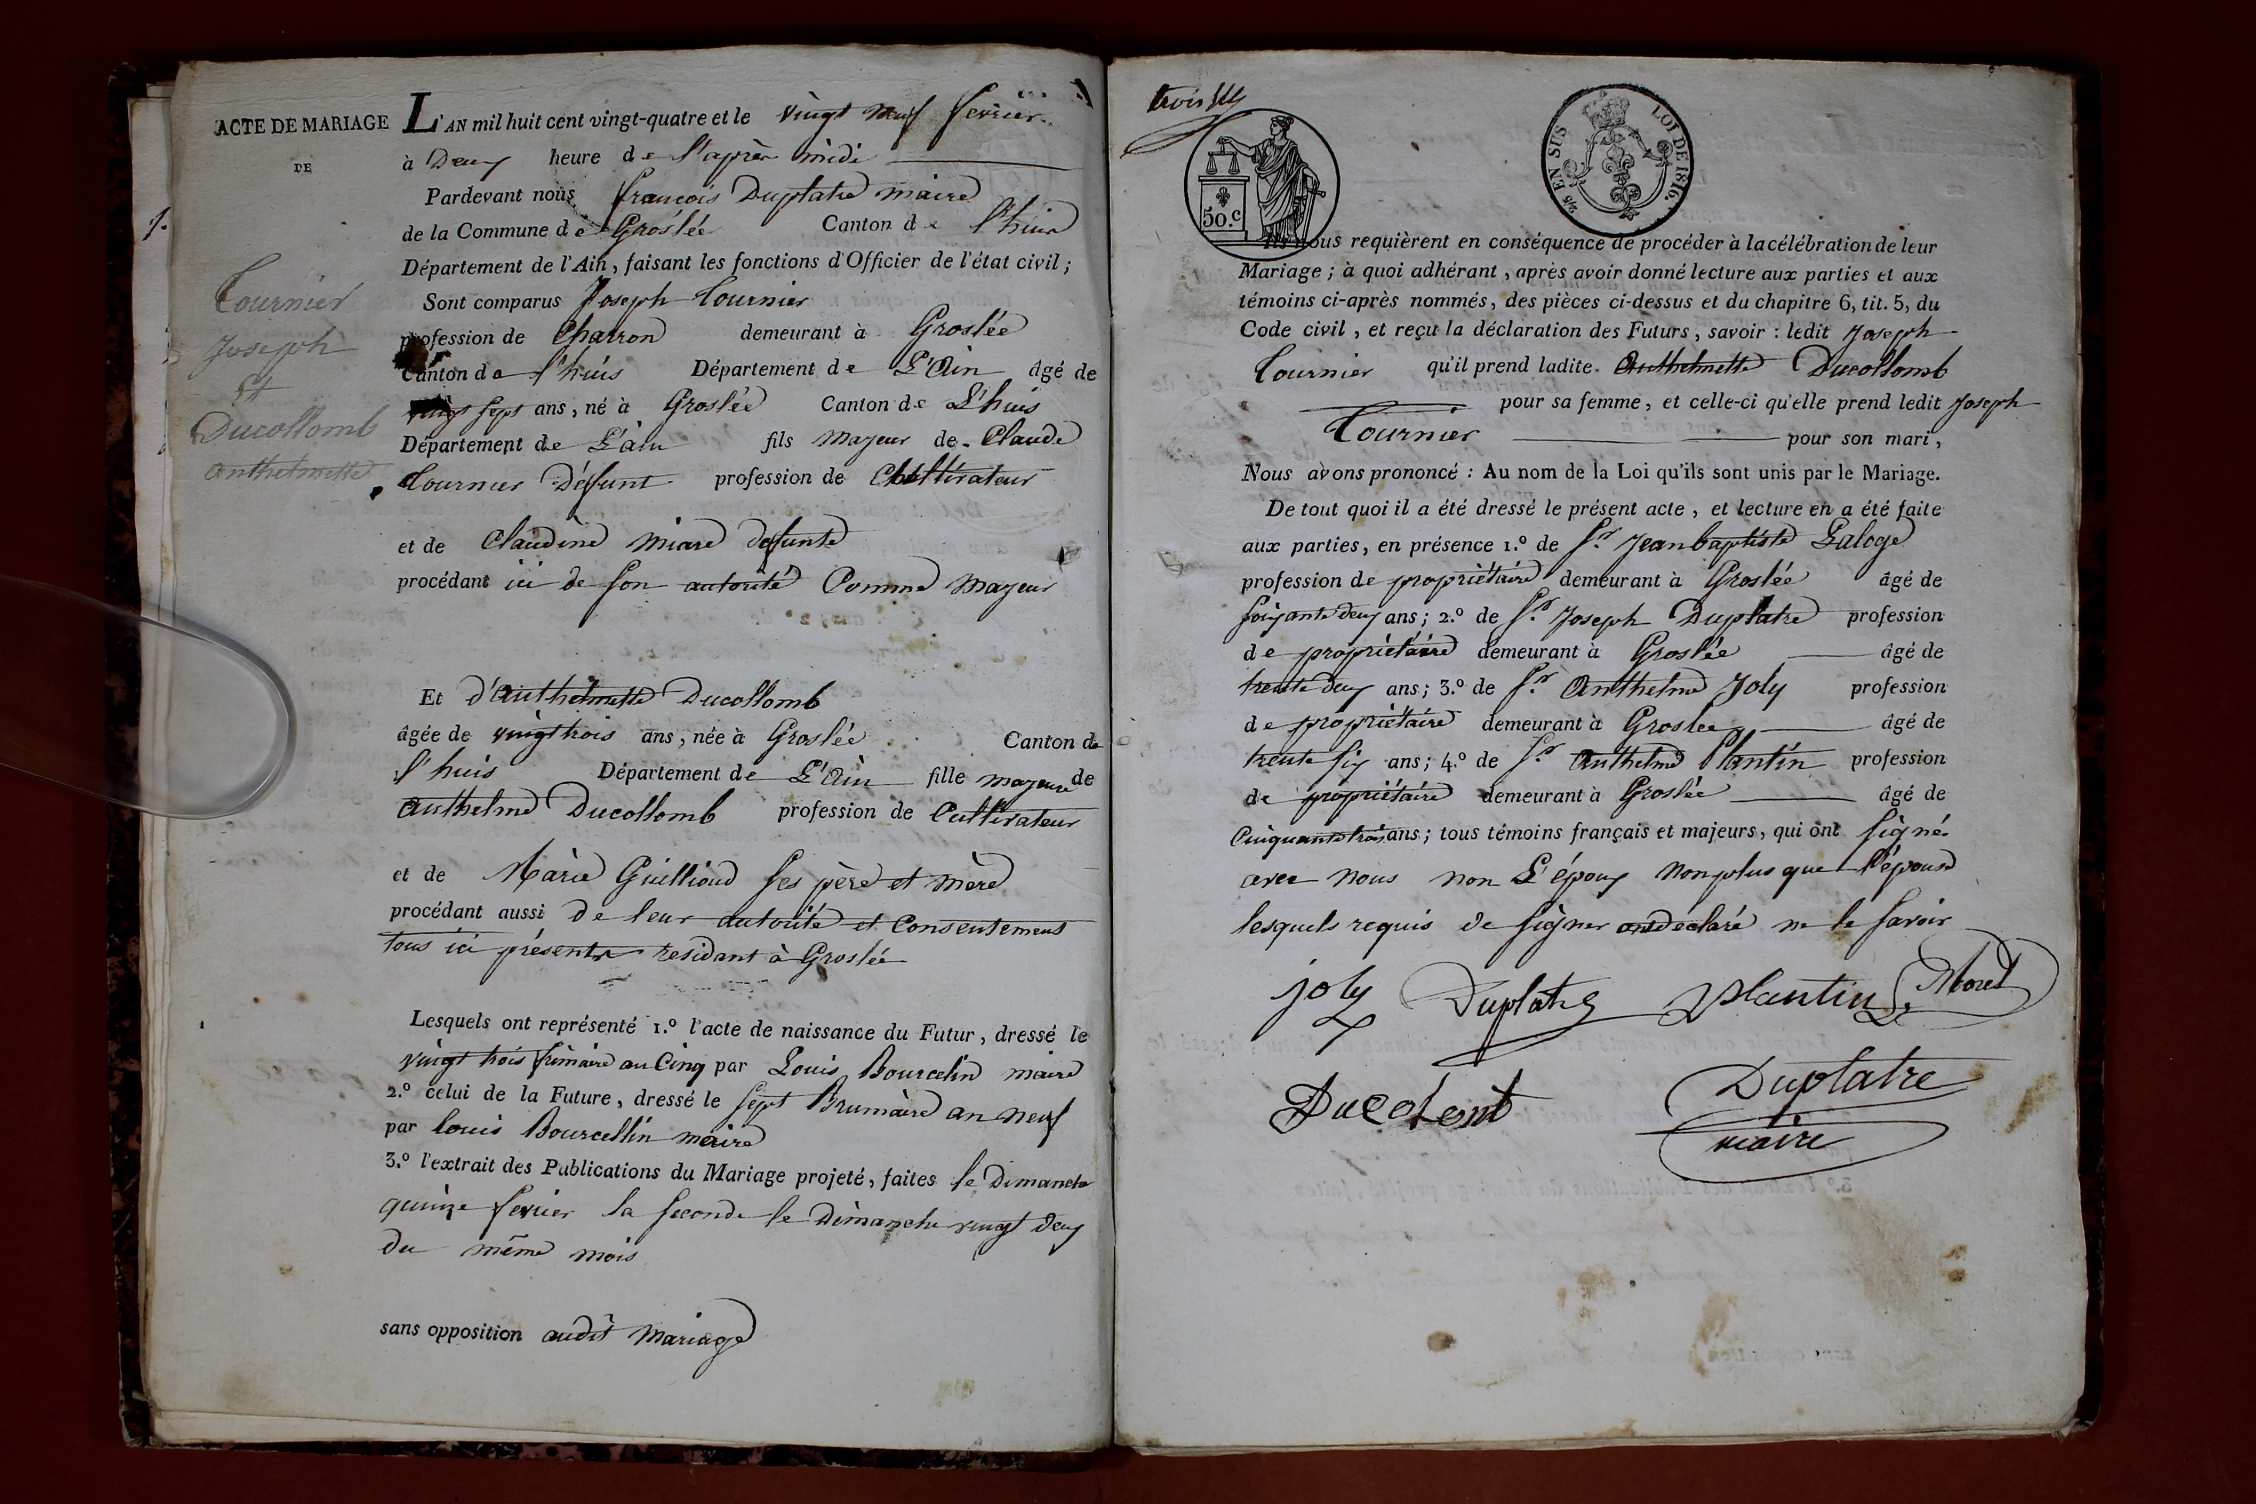 ACTE DE MARIAGE
DE
Tournier
Joseph
et
Ducollomb
anthelmette
L'AN mil huit cent vingt-quatre et le vingt neuf fevrier
à Deux heure de l'après midi
Pardevant nous francois Duplatre maire
de la Commune de Groslée Canton de l'huis
Département de l'Ain, faisant les fonctions d'Officier de l'état civil ;
Sont comparus Joseph Tournier
profession de Charron demeurant à Groslée
Canton de l'huis Département de L'Ain âgé de
vingt sept ans, né à Groslée Canton de L'huis
Département de L'ain fils mayeur de Claude
Tournier Défunt profession de Cultivateur
et de Claudine miare defunte
procédant ici de son autorité Comme mayeur
Et d'anthelmette Ducollomb
âgée de vingt trois ans, née à Groslée Canton de
l'huis Département de L'Ain fille mayeure de
anthelme Ducollomb profession de Cultivateur
et de Marie Guillioud ses père et mère
procédant aussi de leur autorité et Consentement
tous ici présents residant à Groslée
Lesquels ont représenté 1.º l'acte de naissance du Futur, dressé le
vingt trois frimaire an Cinq par Louis Bourcelin maire
2.º celui de la Future, dressé le sept Brumaire an neuf
par Louis Bourcellin maire
3.º l'extrait des Publications du Mariage projeté, faites le Dimanche
quinze fevrier la seconde le Dimanche vingt deux
du même mois
sans opposition audit mariage
trois
50.c
25 EN SUS
LOI DE 1816.
Ils nous requièrent en conséquence de procéder à la célébration de leur
Mariage ; à quoi adhérant, après avoir donné lecture aux parties et aux
témoins ci-après nommés, des pièces ci-dessus et du chapitre 6, tit. 5, du
Code civil, et reçu la déclaration des Futurs, savoir : ledit Joseph
Tournier qu'il prend ladite Anthelmette Ducollomb
pour sa femme, et celle-ci qu'elle prend ledit Joseph
Tournier pour son mari,
Nous avons prononcé : Au nom de la Loi qu'ils sont unis par le Mariage.
De tout quoi il a été dressé le présent acte, et lecture en a été faite
aux parties, en présence 1.º de Sr. Jean baptiste Laloge
profession de propriétaire demeurant à Groslée âgé de
soixante deux ans ; 2.º de Sr. Joseph Duplatre profession
de propriétaire demeurant à Groslée âgé de
trente deux ans ; 3.º de Sr. Anthelme Joly profession
de propriétaire demeurant à Groslée âgé de
trente six ans ; 4.º de Sr. Anthelme Plantin profession
de propriétaire demeurant à Groslée âgé de
Cinquante trois ans ; tous témoins français et majeurs, qui ont signé
avec nous non L'époux non plus que l'épouse
lesquels requis de signer ont déclaré ne le savoir
joly Duplatre Plantin
Ducolont
Duplatre
maire